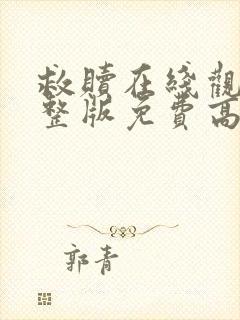 救贖在綫觀
整版免費高
郭青